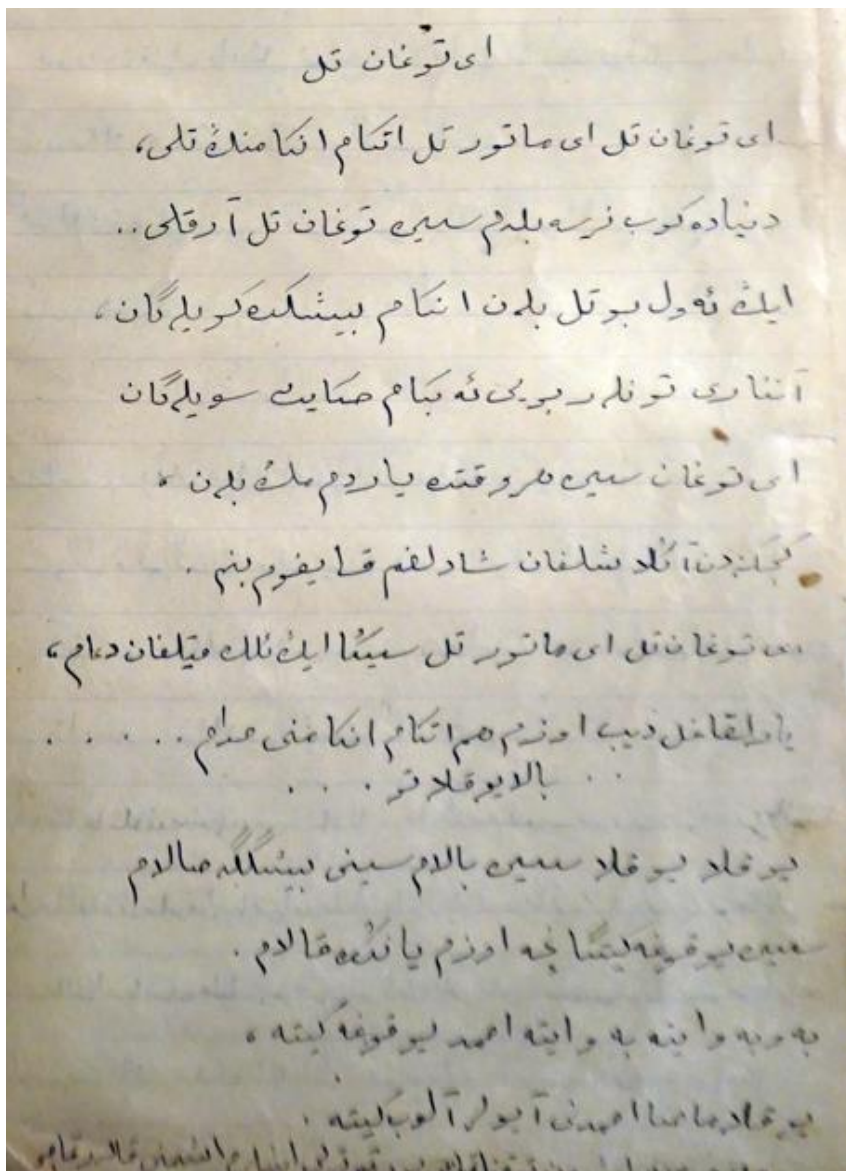 ای توغان تل
ای توغان تل ای ماتور تل اتکام انکامنڭ تلی،
دنیاده کوب نرسه بلدم سین توغان تل آرقلی..
ایڭ ئه‌ول بو تل بله‌ن انکام بیشکده کویله‌گان،
آنناری تونلهر بویی ئه‌بکام حکایت سویله‌گان
ای توغان سین هروقتده یاردم‌ڭ بله‌ن،
کچکنه‌دن آڭلاشلغان شادلغم قایغوم بنم.
ای توغان تل ای ماتور تل سینڭا ایڭ‌لک قیلغان دعام،
یارلقاغل دیب اوزم هم اتکام انکامنی خدام.....
.. بالا یوقلاتو ...
یوقلا یوقلا سین بالام سینی بیشگگه صالام
سین یوقیغه کیتگانچه اوزم یانڭده قالام.
به وبه وایته به وایته احمد یوقوغه کیته،
یوقلاماسا احمدنی آیولر آلوب کیته.